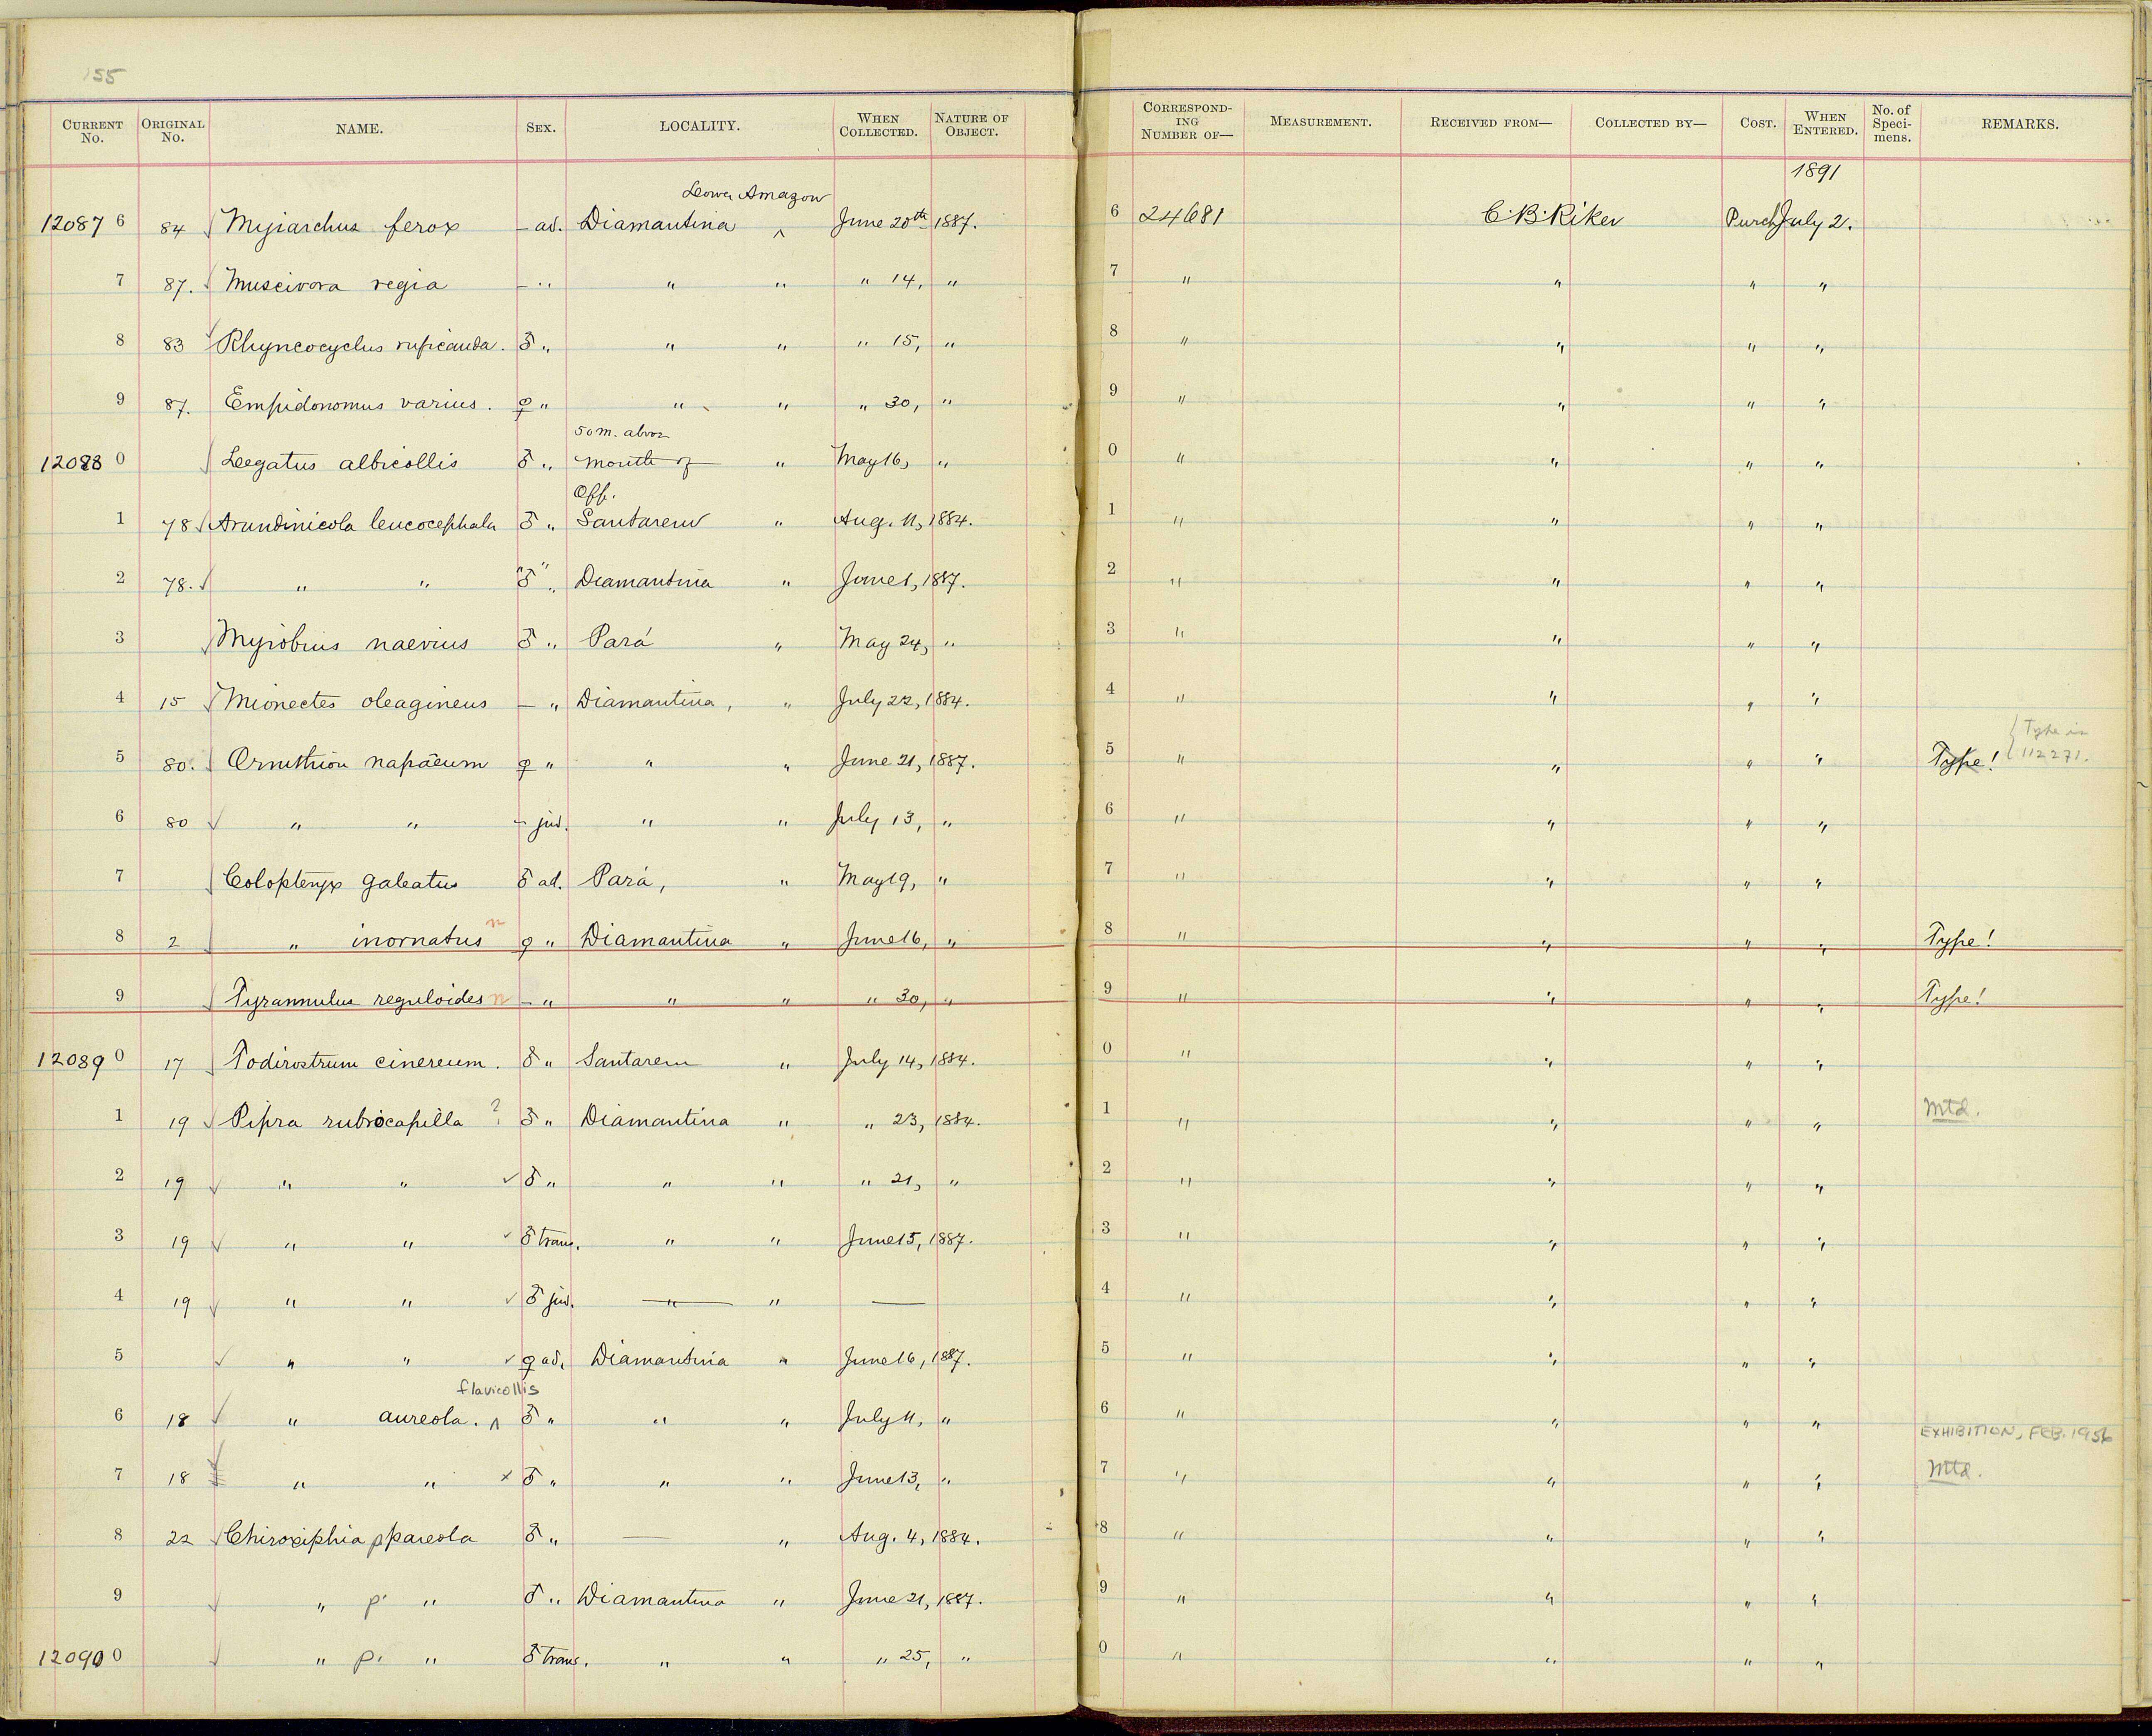 155
CURRENT No. ORIGINAL No. NAME. SEX. LOCALITY. WHEN COLLECTED. NATURE OF OBJECT. CORRESPONDING NUMBER OF— MEASUREMENT. RECEIVED FROM— COLLECTED BY— COST. WHEN ENTERED. No. of Specimens. REMARKS.
1891
Lower Amazon
12087 6 84 Myiarchus ferox – ad. Diamantina ^ June 20th 1887. 6 24681 C.B. Riker Purch July 2.
7 87. Muscivora regia – " " " " 14, " 7 " " " "
8 83 Rhyncocyclus ruficauda. ♂ " " " " 15, " 8 " " " "
9 87. Empidonomus varius. ♀ " " " " 30, " 9 " " " "
50 m. above
12088 0 Legatus albicollis ♂ " mouth of " May 16, " 0 " " " "
Off.
1 78 Arundinicola leucocephala ♂ " Santarem " Aug. 11, 1884. 1 " " " "
2 78. " " "♂" " Diamantina " June 1, 1887. 2 " " " "
3 Myiobius naevius ♂ " Pará " May 24, " 3 " " " "
4 15 Mionectes oleagineus – " Diamantina, " July 22, 1884. 4 " " " "
5 80. Ornithion napaeum ♀ " " " June 21, 1887. 5 " " " " Type! { Type is 112271.
6 80 " " – juv. " " July 13, " 6 " " " "
7 Colopteryx galeatus ♂ ad. Pará, " May 19, " 7 " " " "
8 2 " inornatus n ♀ " Diamantina " June 16, " 8 " " " " Type!
9 Tyrannulus reguloides n – " " " " 30, " 9 " " " " Type!
12089 0 17 Todirostrum cinereum. ♂ " Santarem " July 14, 1884. 0 " " " "
1 19 Pipra rubrocapilla ? ♂ " Diamantina " " 23, 1884. 1 " " " " Mtd.
2 19 " " ✓ ♂ " " " " 21, " 2 " " " "
3 19 " " ✓ ♂ trans. " " June 15, 1887. 3 " " " "
4 19 " " ✓ ♂ juv. " " — 4 " " " "
5 " " ✓ ♀ ad. Diamantina " June 16, 1887. 5 " " " "
flavicollis
6 18 " aureola. ^ ♂ " " " July 11, " 6 " " " "
EXHIBITION, FEB. 1956
7 18 " " × ♂ " " " June 13, " 7 " " " " Mtd.
8 22 Chiroxiphia p pareola ♂ " — " Aug. 4, 1884. 8 " " " "
9 " p. " ♂ " Diamantina " June 21, 1887. 9 " " " "
12090 0 " p. " ♂ trans. " " " 25, " 0 " " " "